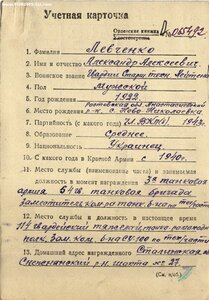 Учетная карточка
Орденская книжка
№ 065492
1. Фамилия Левченко
2. Имя и отчество Александр Алексеевич
3. Воинское звание Гвардии Старш. техн. Лейтенант
4. Пол Мужской
5. Год рождения 1922
6. Место рождения Ростовская обл. Анастасиевский
р-н с. Ново-Николаевка
7. Партийность (с какого года) ВКП(б) 1942
8. Образование Среднее
9. Национальность Украинец
10. С какого года в Красной Армии с 1940г.
11. Место службы (наименование части) и занимаемая
должность в момент награждения 3я танковая
армия 54 танковая бригада
зам.
12. Место службы и должность в настоящее время
гвардейский тяжелый
полк, Зам. ком.
13. Домашний адрес награжденного Сталинская
Снежнянский р-н шахта
(См. н/об.)